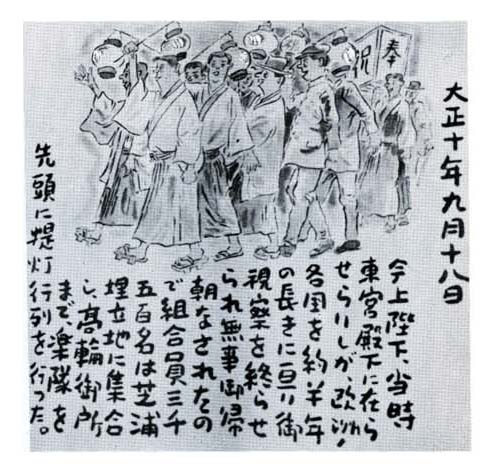 奉
祝
大正十年九月十八日
今上陛下、当時
東宮殿下に在ら
せられしが、欧洲
各国を約半年
の長きに亘り御
視察を終らせ
られ無事御帰
朝なされたの
で組合員三千
五百名は芝浦
埋立地に集合
し、高輪御所
まで楽隊を
先頭に提灯行列を行った。